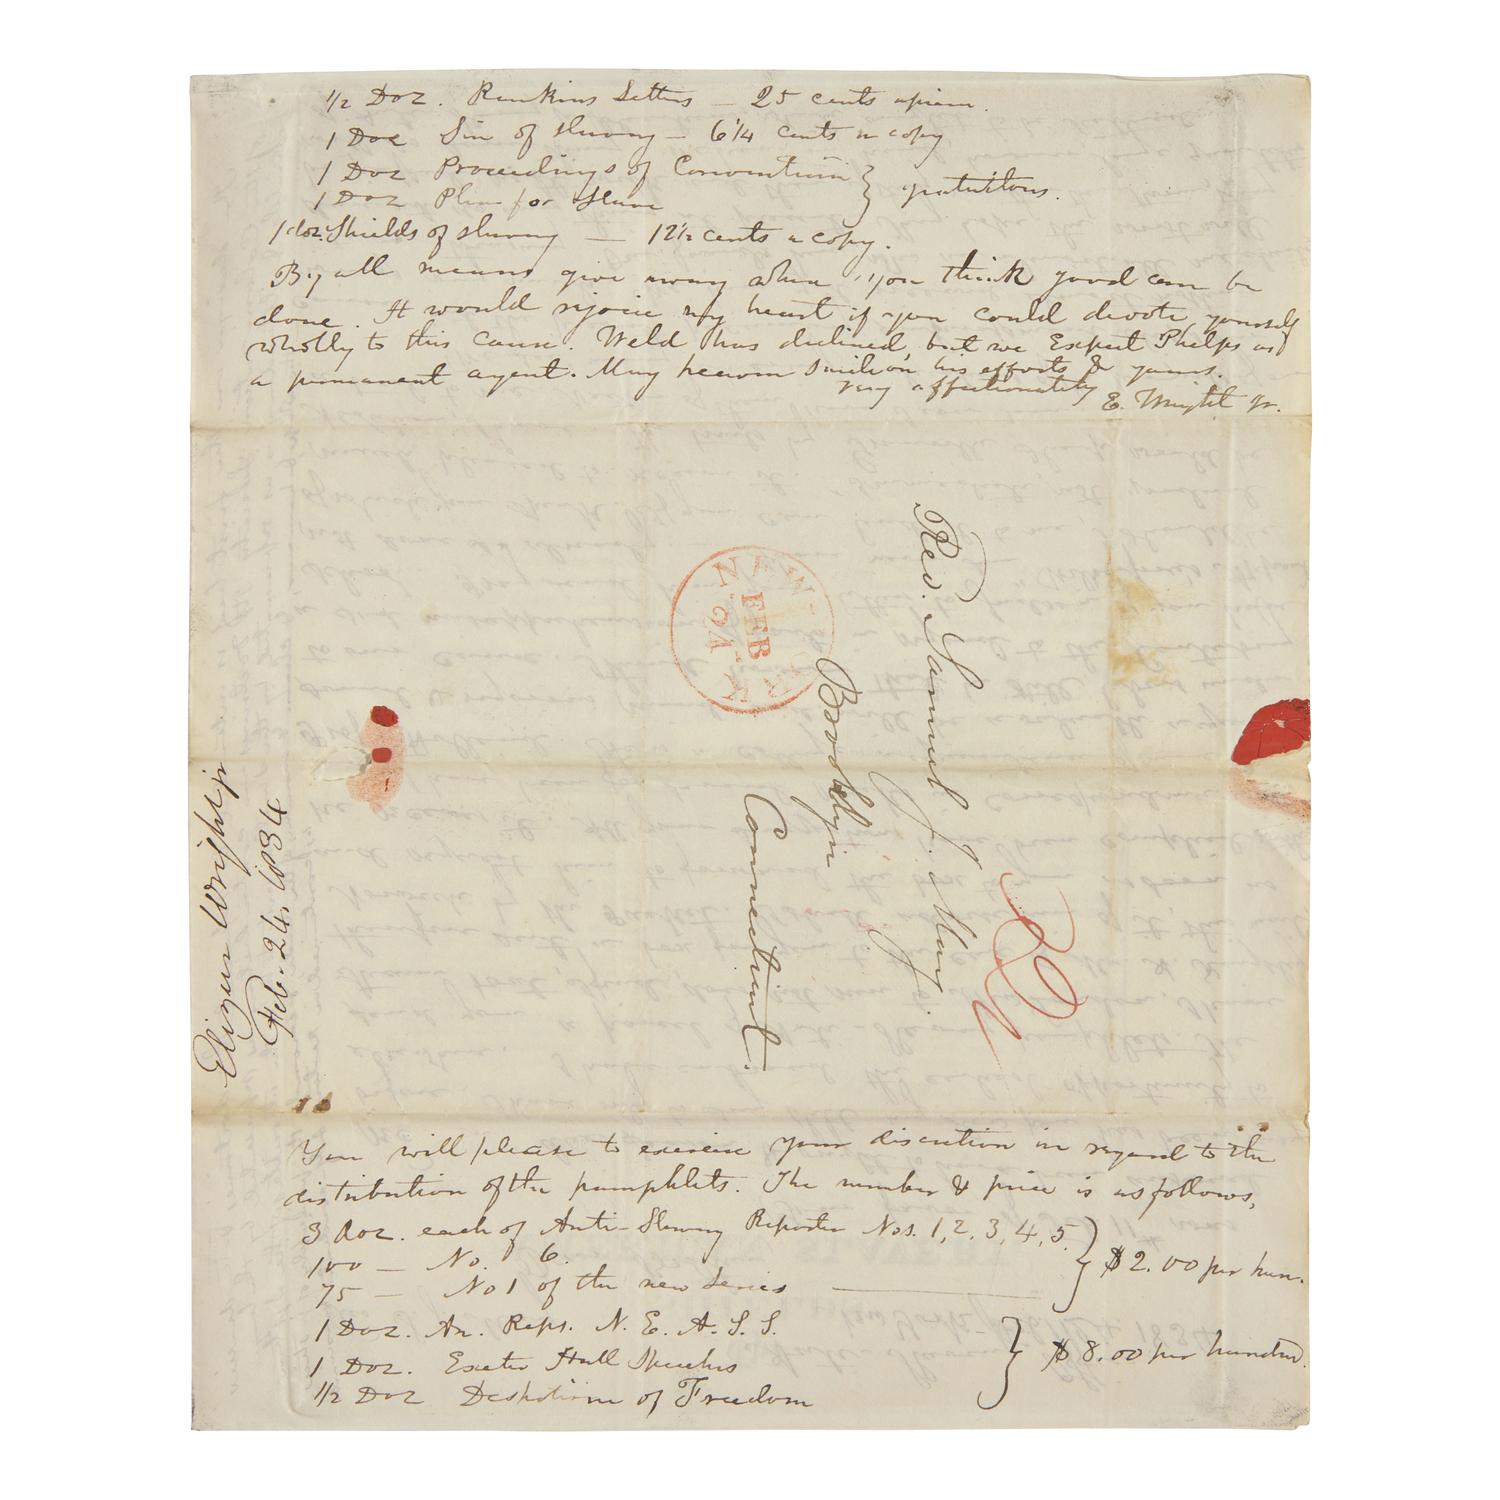 1/2 Doz. Rankins Letters — 25 cents apiece.
1 Doz Sin of Slavery — 6 1/4 cents a copy
1 Doz Proceedings of Convention } gratuitous.
1 Doz Plea for Slave
1 doz. Shields of slavery — 12 1/2 cents a copy.
By all means give away when you think good can be
done. It would rejoice my heart if you could devote yourself
wholly to this cause. Weld has declined, but we Expect Phelps as
a permanent agent. May heaven smile on his efforts & yours.
very affectionately E. Wright Jr.
Rev. Samuel J. May
Brooklyn
Connecticut.
NEW-YORK
FEB
24
Elizur Wright jr
Feb. 24, 1834
You will please to exercise your discretion in regard to the
distribution of the pamphlets. The number & price is as follows,
3 doz. each of Anti-Slavery Reporter Nos. 1, 2, 3, 4, 5. } $2.00 per hun.
100 — No. 6.
75 — No 1 of the new Series
1 Doz. An. Reps. N. E. A. S. S. } $8.00 per hundred.
1 Doz. Exeter Hall Speeches
1/2 Doz Despotism of Freedom